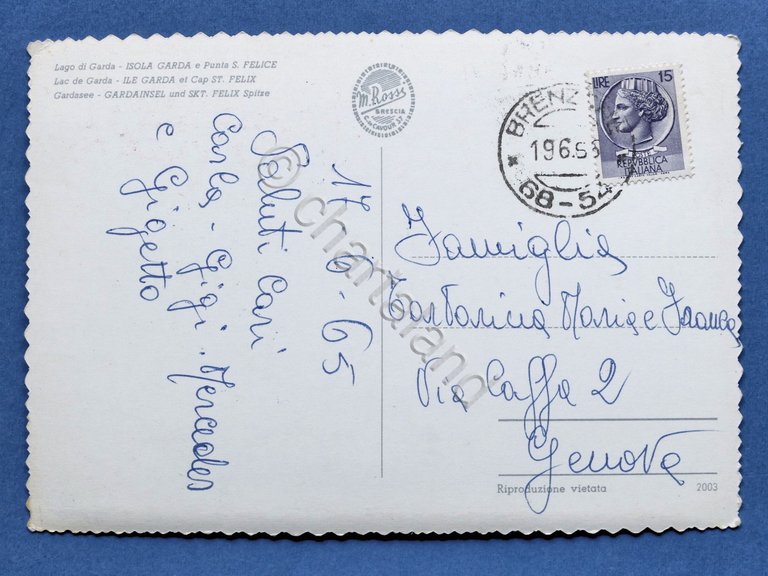 Lago di Garda - ISOLA GARDA e Punta S. FELICE
Lac de Garda - ILE GARDA et Cap ST. FELIX
Gardasee - GARDAINSEL und SKT. FELIX Spitze
M. Rossi
BRESCIA
C. CAVOUR 37
BRENZ
19.6.6
68-54
LIRE 15
REPUBBLICA
ITALIANA
17-6-65
Saluti Cari
Carla - Gigi. Mercedes
e Gigetto
Famiglia
Maria e Franca
Via Caffa 2
Genova
Riproduzione vietata
2003
© chartaland